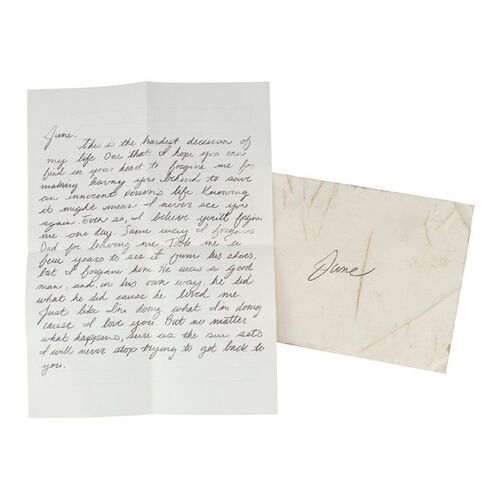 June,
This is the hardest decision of
my life. One that I hope you can
find in your head to forgive me for
making leaving you behind to save
an innocent persons life. Knowing
it might mean I never see you
again. Even so, I believe you'll forgive
me one day. Same way I forgave
Dad for leaving me. Took me a
few years to see it from his shoes.
but I forgave him. He was a good
man, and, in his own way, he did
what he did cause he loved me
Just like I'm doing what I'm doing
cause I love you. But no matter
what happens, sure as the sun sets
I will never stop trying to get back to
you.
June